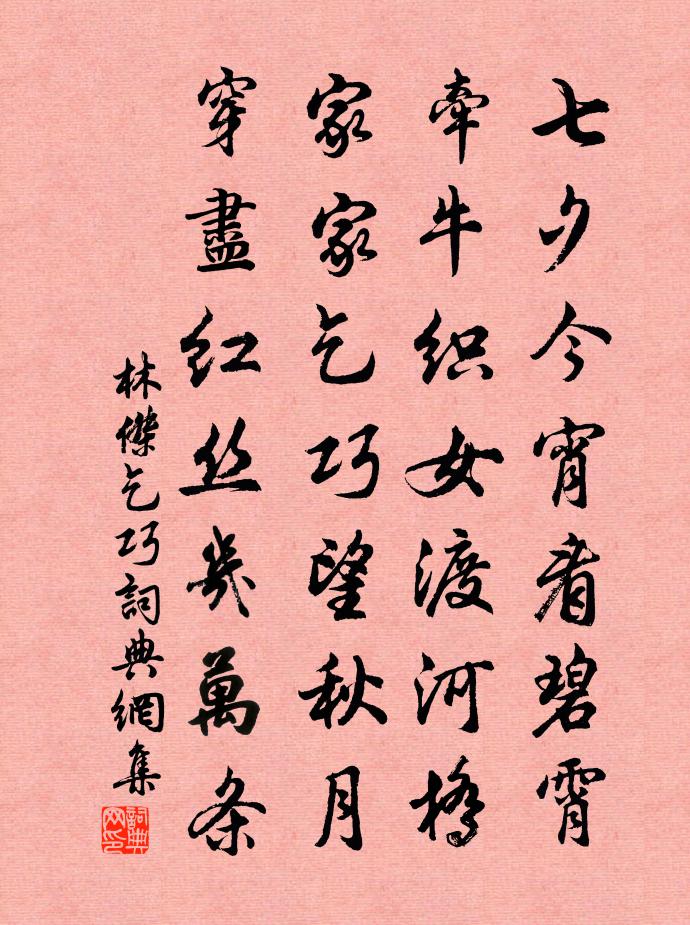 七夕今宵看碧霄
牽牛織女渡河橋
家家乞巧望秋月
穿盡紅丝幾萬条
林傑乞巧詞典網集
詞典网印